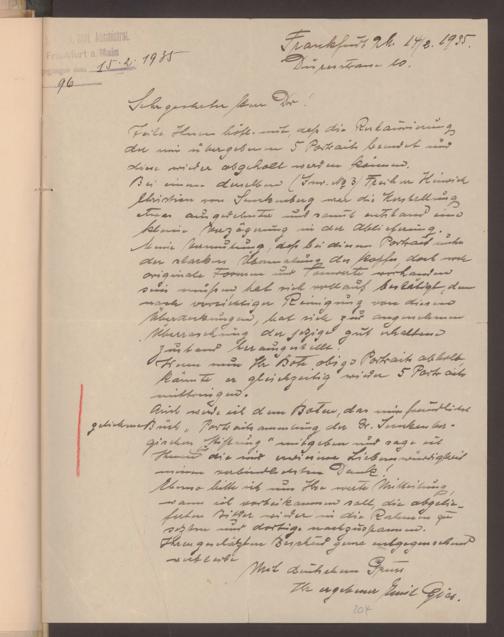 Frankfurt a. Main
15.2.1935
96
Frankfurt a/M. 14/2. 1935.
Dürerstrasse 10.
Sehr geehrter Herr Dr!
Teile Ihnen höfl. mit, daß die Restaurierung
der mir übergebenen 5 Portraits beendet und
diese wieder abgeholt werden können.
Bei einem derselben (Inv. No 3) Freiherr Heinrich
Christian von Senkenberg war die Herstellung
etwas ausgedehnter und somit entstand eine
kleine Verzögerung in der Ablieferung.
Meine Vermutung, daß bei diesem Portrait unter
der starken Übermalung des Kopfes doch noch
originale Formen und vorhanden
sein müßen hat sich vollauf bestätigt, denn
nach vorsichtiger Reinigung von diesen
Überdeckungen, hat sich zur angenehmen
Überraschung der jetzige gut erhaltene
Zustand herausgestellt.
Wenn nun Ihr Bote obige Portraits abholt
könnte er gleichzeitig wieder 5 Portraits
mitbringen.
Auch werde ich dem Boten, das mir freundlichst
geliehene Buch „Portraitsammlung der Dr. Senckenber-
gischen Stiftung" mitgeben und sage ich
Ihnen für die mir erwiesene Liebenswürdigkeit
meinen verbindlichsten Dank!
Ebenso bitte ich um Ihre werte Mitteilung,
wann ich vorbeikommen soll, die abgelie-
ferten Bilder wieder in die Rahmen zu
setzen und dortige nachzuspannen.
Ihrem geschätzten Bescheid gerne entgegensehend
verbleibe
Mit deutschem Gruss
Ihr ergebener Emil
204